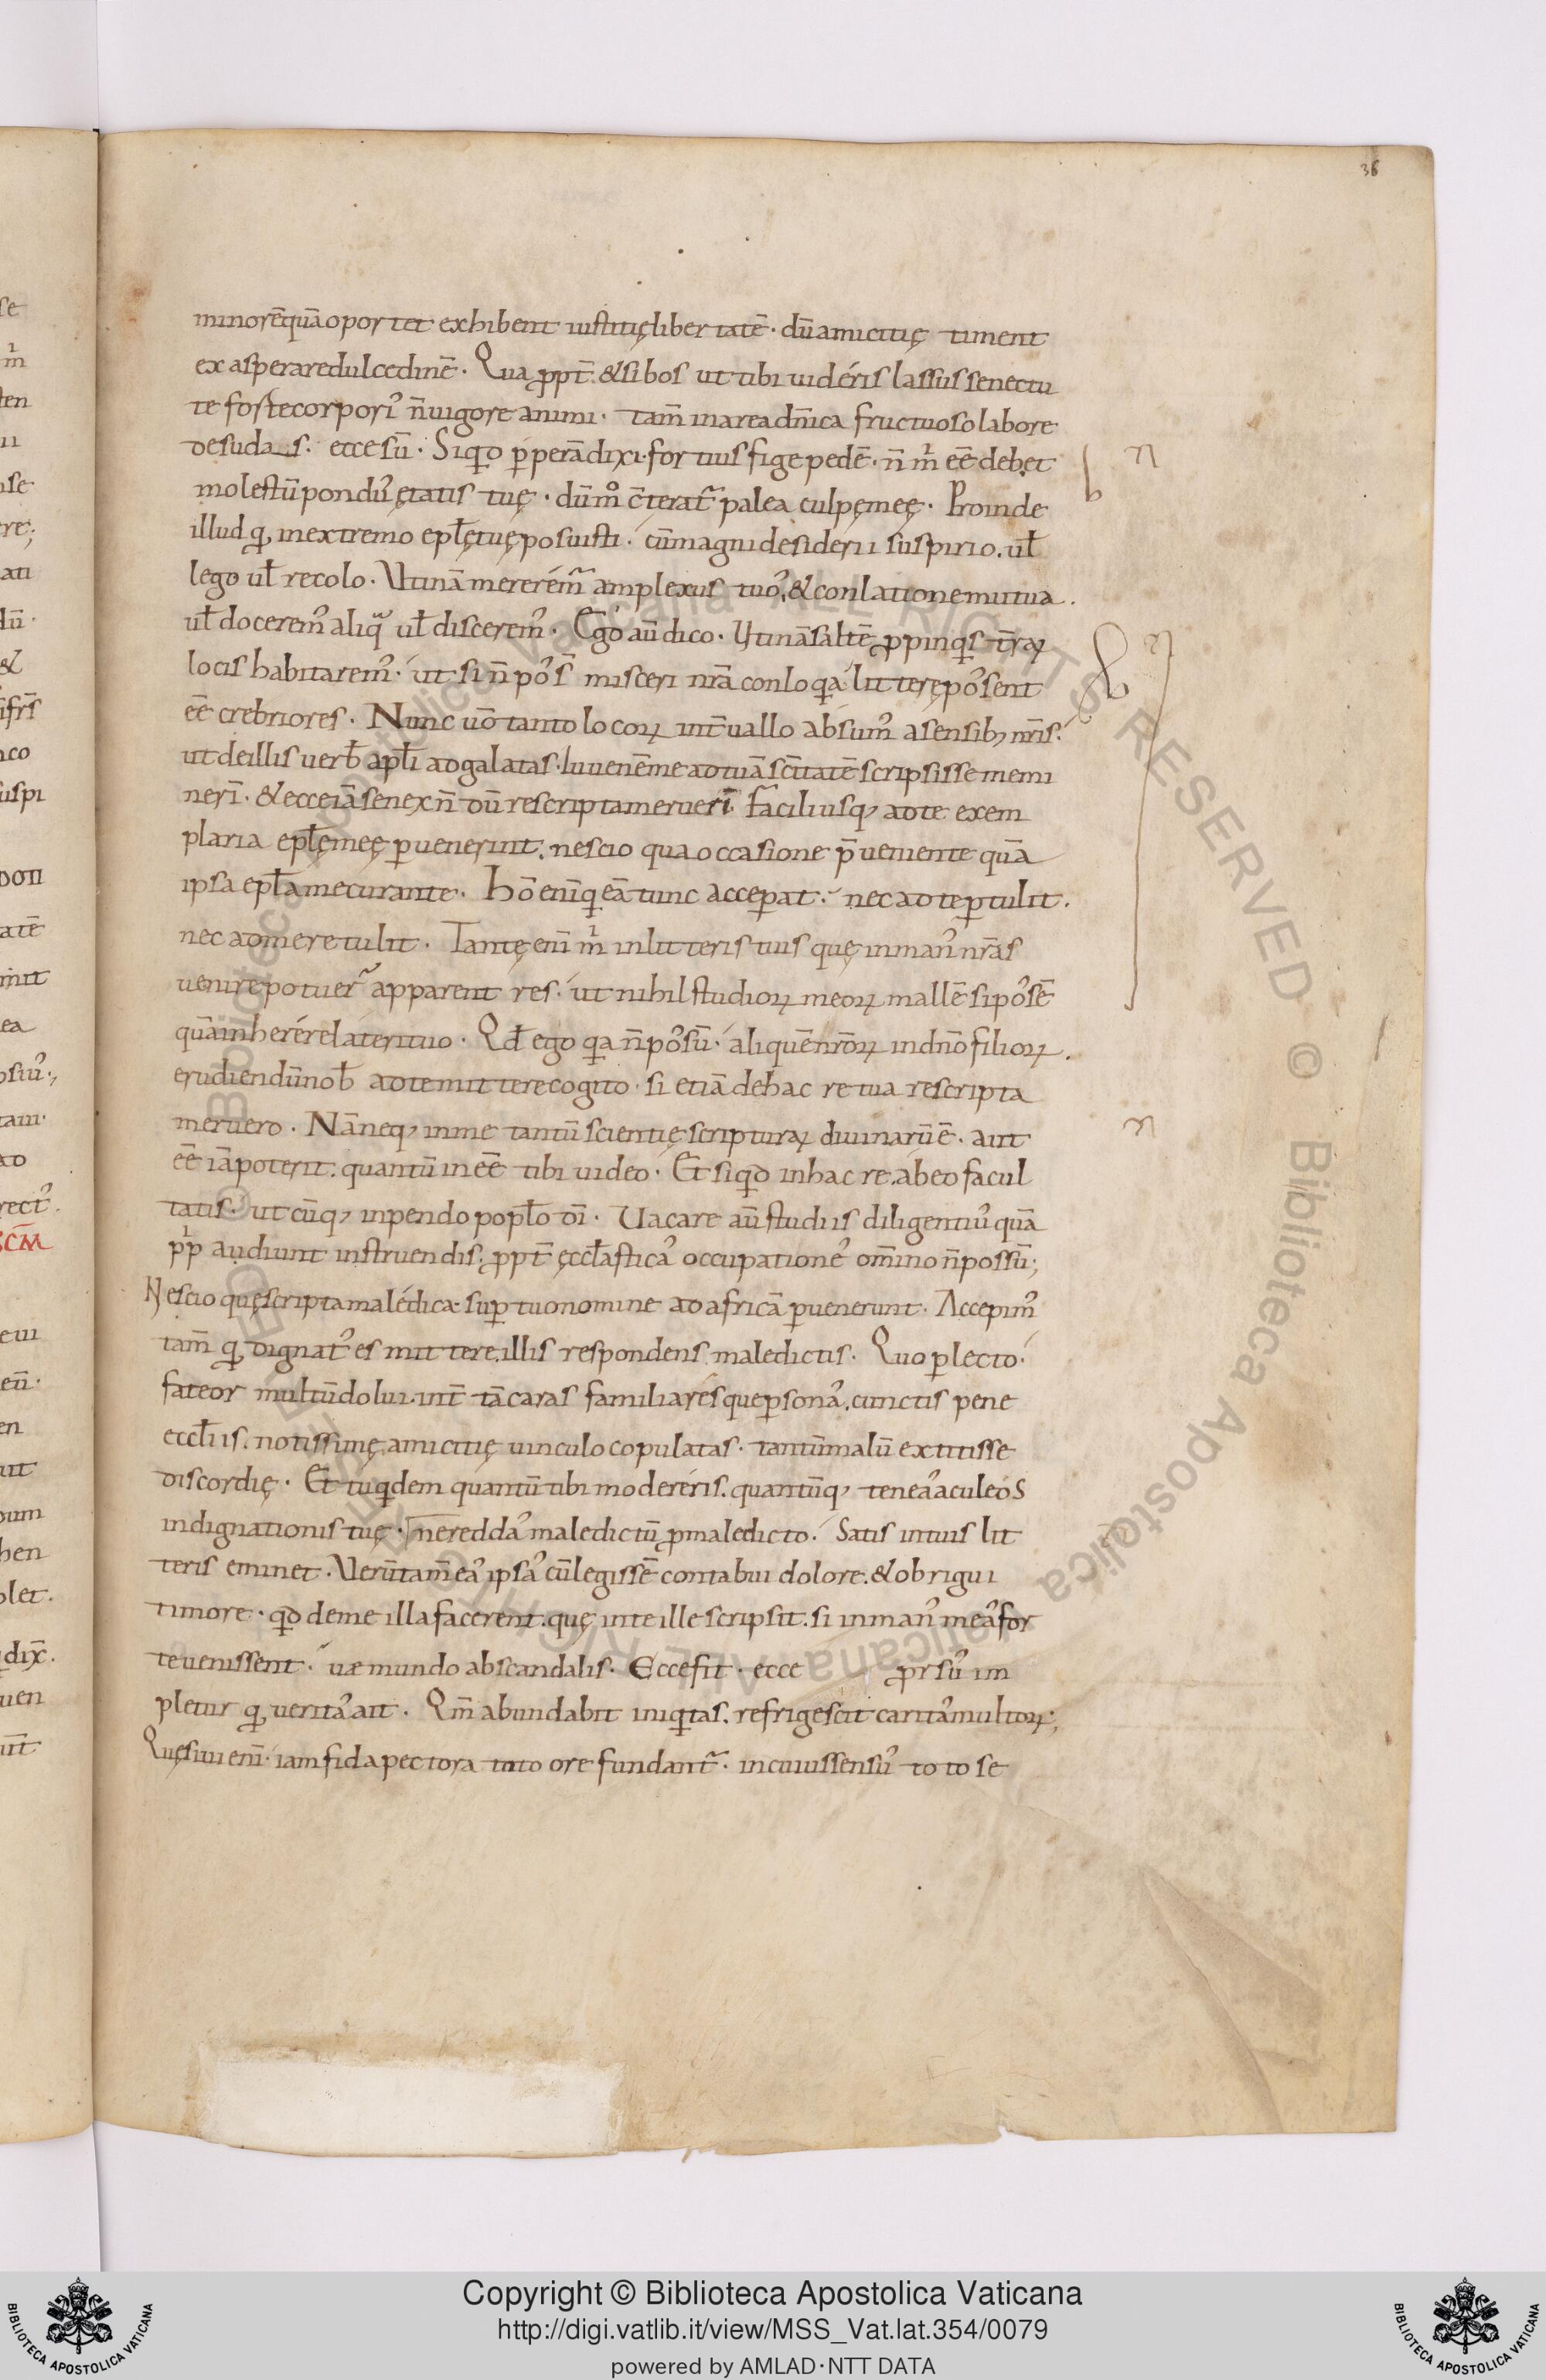 36
minorē quā oportet exhibent iustitię libertatē · dū amicitię timent
exasperare dulcedinē · Qua ꝓpt̄ · & si bos ut tibi uideris lassus senectu
te forte corporiꝰ n̄ uigore animi · tam̄ in area dn̄ica fructuoso labore
desudas · ecce sū · Si qd ꝑperā dixi · fortius fige pedē · n̄ m̄ eē debet
molestū pondꝰ ętatis tuę · dūm̊ c̄terat᷒ palea culpę meę · Proinde
illud qꝫ in extremo epl̄ę tuę posuisti · cū magni desiderii suspirio · ul̄
lego ul̄ recolo · Utinā mererem᷒ amplexus tuoꝰ · & conlatione mutua ·
ul̄ doceremꝰ aliqͣ ul̄ disceremꝰ · Ego aū dico · Utinā saltē ꝓpinqͥs t̄raꝝ
locis habitaremꝰ · ut si n̄ poꝰs̄ misceri nr̄a conloqͥa litterę poꝰsent
eē crebriores · Nunc uō tanto locoꝝ int̄uallo absumꝰ a sensibꝫ nr̄is ·
ut de illis uerb̄ apl̄i ad galatas · Iuuenē me ad tuā sc̄itatē scripsisse memi
nerī · & ecce iā senex n̄ dū rescripta meruerī · Faciliusqꝫ ad te exem
plaria epl̄ę meę ꝑuenerint · nescio qua occasione p̄ueniente quā
ipsa epl̄a me curante · Hō enī qͥ eā tunc acceꝑat · nec ad te ꝑtulit ·
nec ad me retulit · Tantę enī m̄ in litteris tuis quę in manꝰ nr̄as
uenire potuer᷒ apparent res · ut nihil studioꝝ meoꝝ mallē si poꝰsē
quā inherere lateri tuo · Qd̄ ego qͥa n̄ poꝰsū · aliquē nr̄oꝝ in dn̄o filioꝝ ·
erudiendū nob̄ ad te mittere cogito · si etiā de hac re tua rescripta
meruero · Nā neqꝫ in me tantū scientię scripturaꝝ diuinarū ē · aut
eē iā poterit · quantū inēe tibi uideo · Et si qd in hac re habeo facul
tatis · utcūqꝫ inpendo popl̄o dī · Uacare aū studiis diligentiꝰ quā
pp̄ audiunt instruendis · ꝓpt̄ ęccl̄asticaꝰ occupationeꝰ om̄ino n̄ possū ;
Nescio quę scripta maledica suꝑ tuo nomine ad africā ꝑuenerunt · Accepimꝰ
tam̄ qꝫ dignatꝰ es mittere · illis respondens maledictis · Quo ꝑlecto ·
fateor multū dolui · int̄ tā caras familiaresque ꝑsonaꝰ · cunctis pene
eccl̄iis · notissimę amicitię uinculo copulatas · tantū malū extitisse
discordię · Et tu qͥdem quantū tibi modereris · quantūqꝫ teneaꝰ aculeos
indignationis tuę · ne reddaꝰ maledictū ꝓ maledicto · Satis in tuis lit
teris eminet · Uerūtam̄ eaꝰ ipsaꝰ cū legissē contabui dolore · & obrigui
timore · qd de me illa facerent · quę in te ille scripsit · si in manꝰ meaꝰ for
te uenissent · uæ mundo ab scandalis · Ecce fit · ecce ꝓrsuꝰ im
pletur qꝫ ueritaꝰ ait · Qm̄ abundabit iniqͥtas · refrigescit caritaꝰ multoꝝ ;
Quę siui enī · iam fida pectora tuto ore fundant᷒ · in cuius sensuꝰ toto se
Copyright © Biblioteca Apostolica Vaticana
http://digi.vatlib.it/view/MSS_Vat.lat.354/0079
powered by AMLAD·NTT DATA
BIBLIOTECA APOSTOLICA VATICANA
BIBLIOTECA APOSTOLICA VATICANA